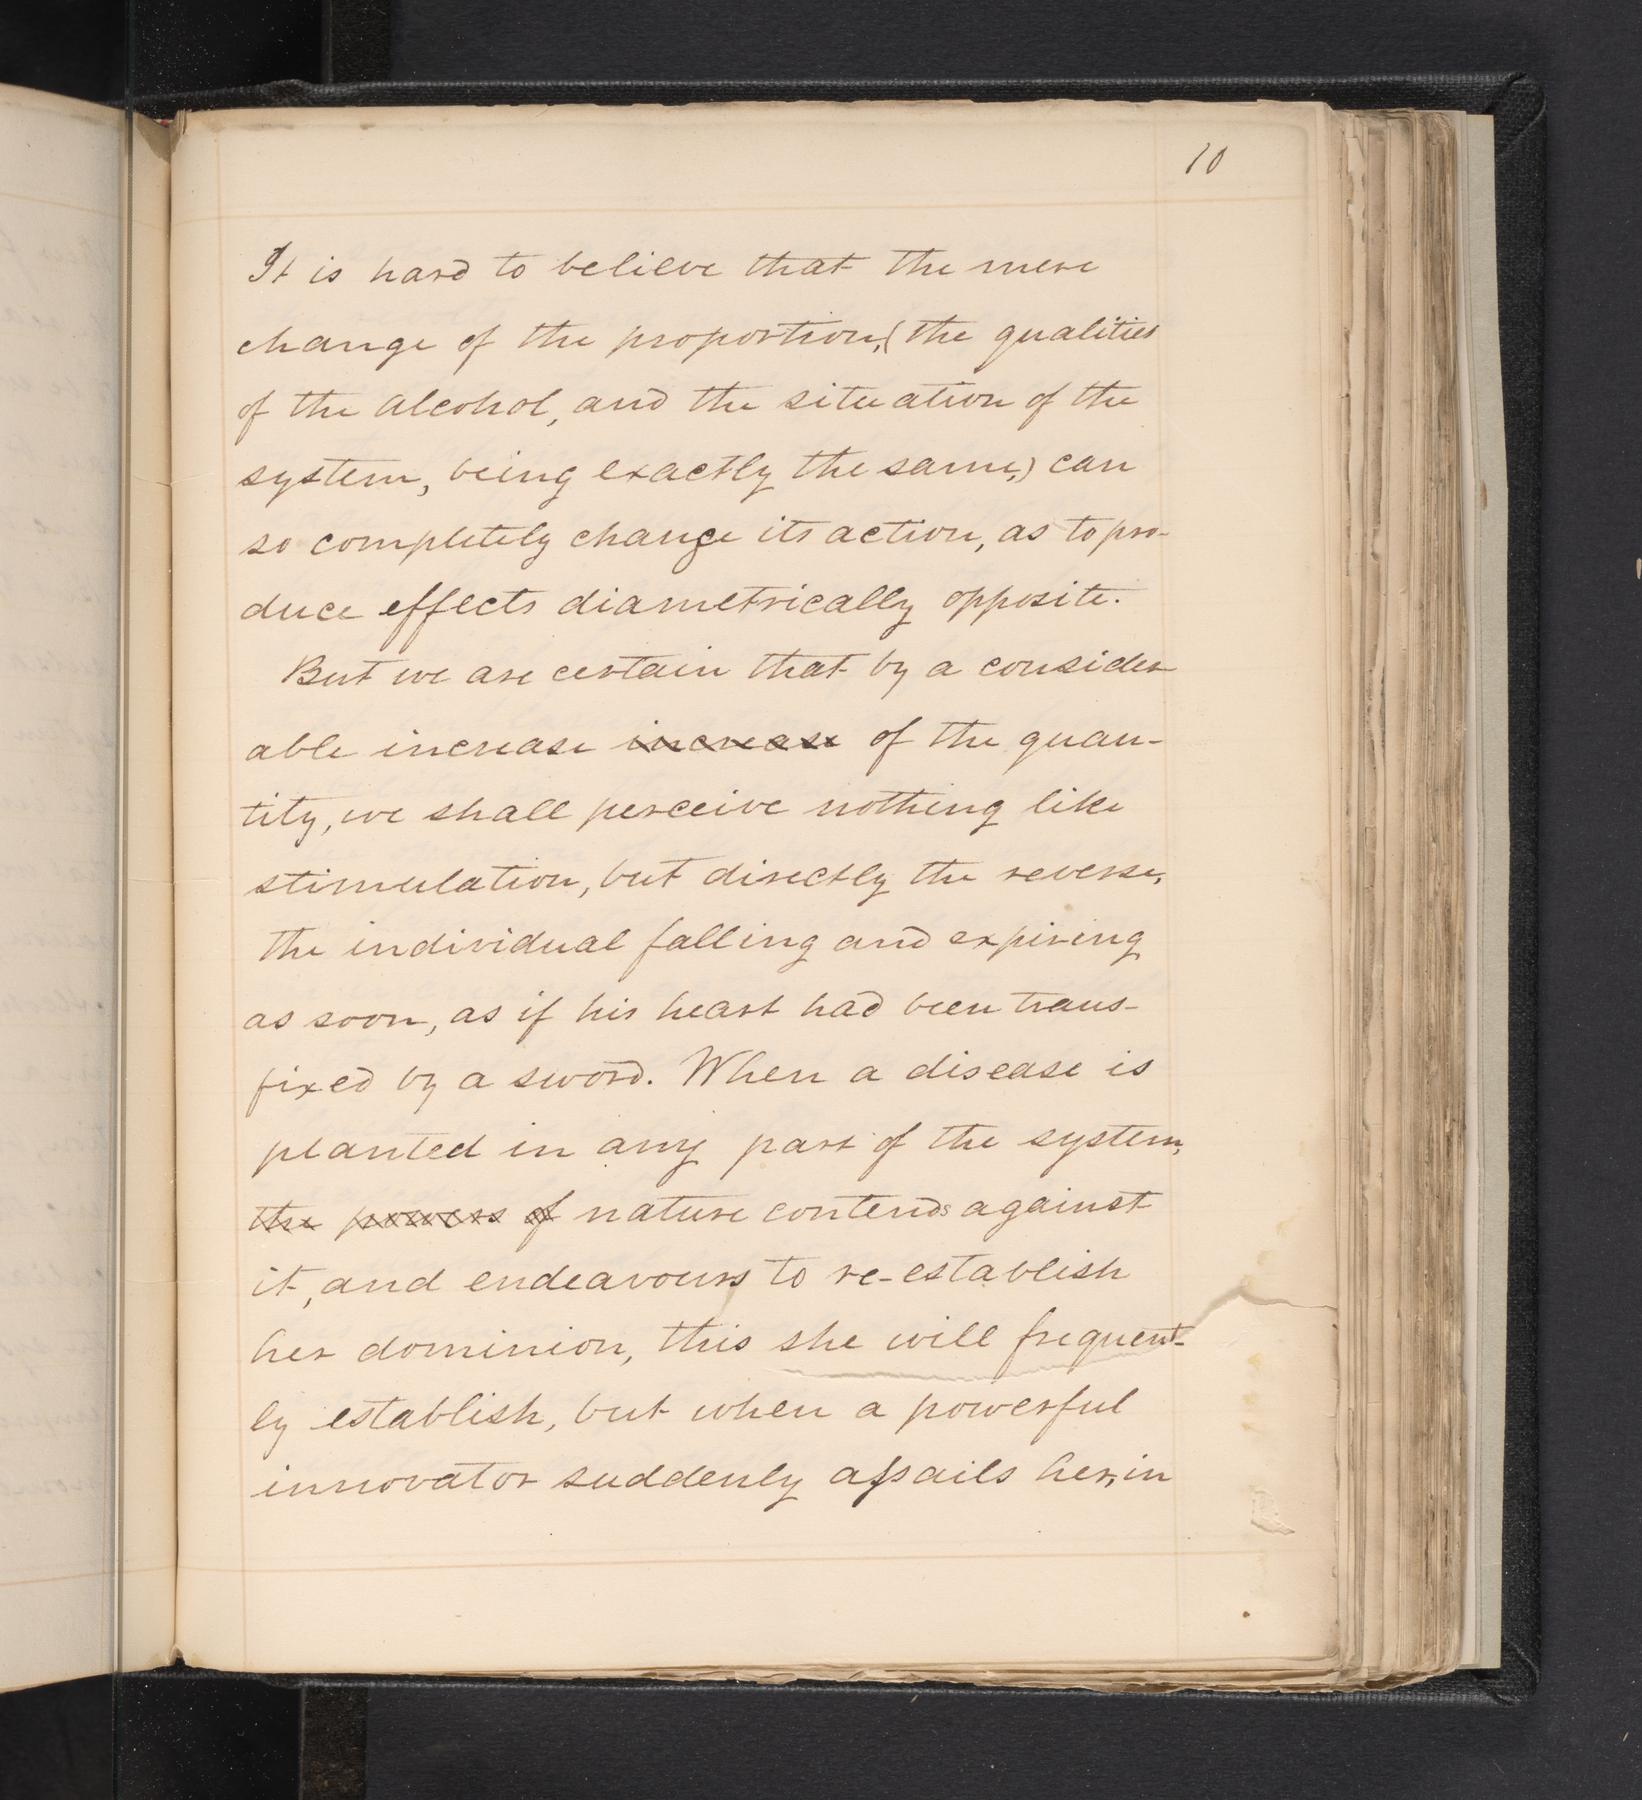 10
It is hard to believe that the mere
change of the proportion, (the qualities
of the alcohol, and the situation of the
system, being exactly the same,) can
so completely change its action, as to pro-
duce effects diametrically opposite.
But we are certain that by a consider
able increase increase of the quan-
tity, we shall perceive nothing like
stimulation, but directly the reverse,
the individual falling and expiring
as soon, as if his heart had been trans-
fixed by a sword. When a disease is
planted in any part of the system,
the powers of nature contends against
it, and endeavours to re-establish
her dominion, this she will frequent-
ly establish, but when a powerful
innovator suddenly assails her, in